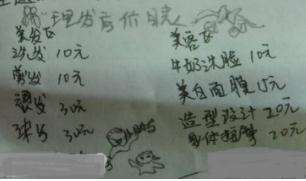 理发店价目表
美发区
洗发 10元
剪发 10元
烫发 30元
染发 30元
美容区
牛奶洗脸 10元
美白面膜 15元
造型设计 20元
身体按摩 20元